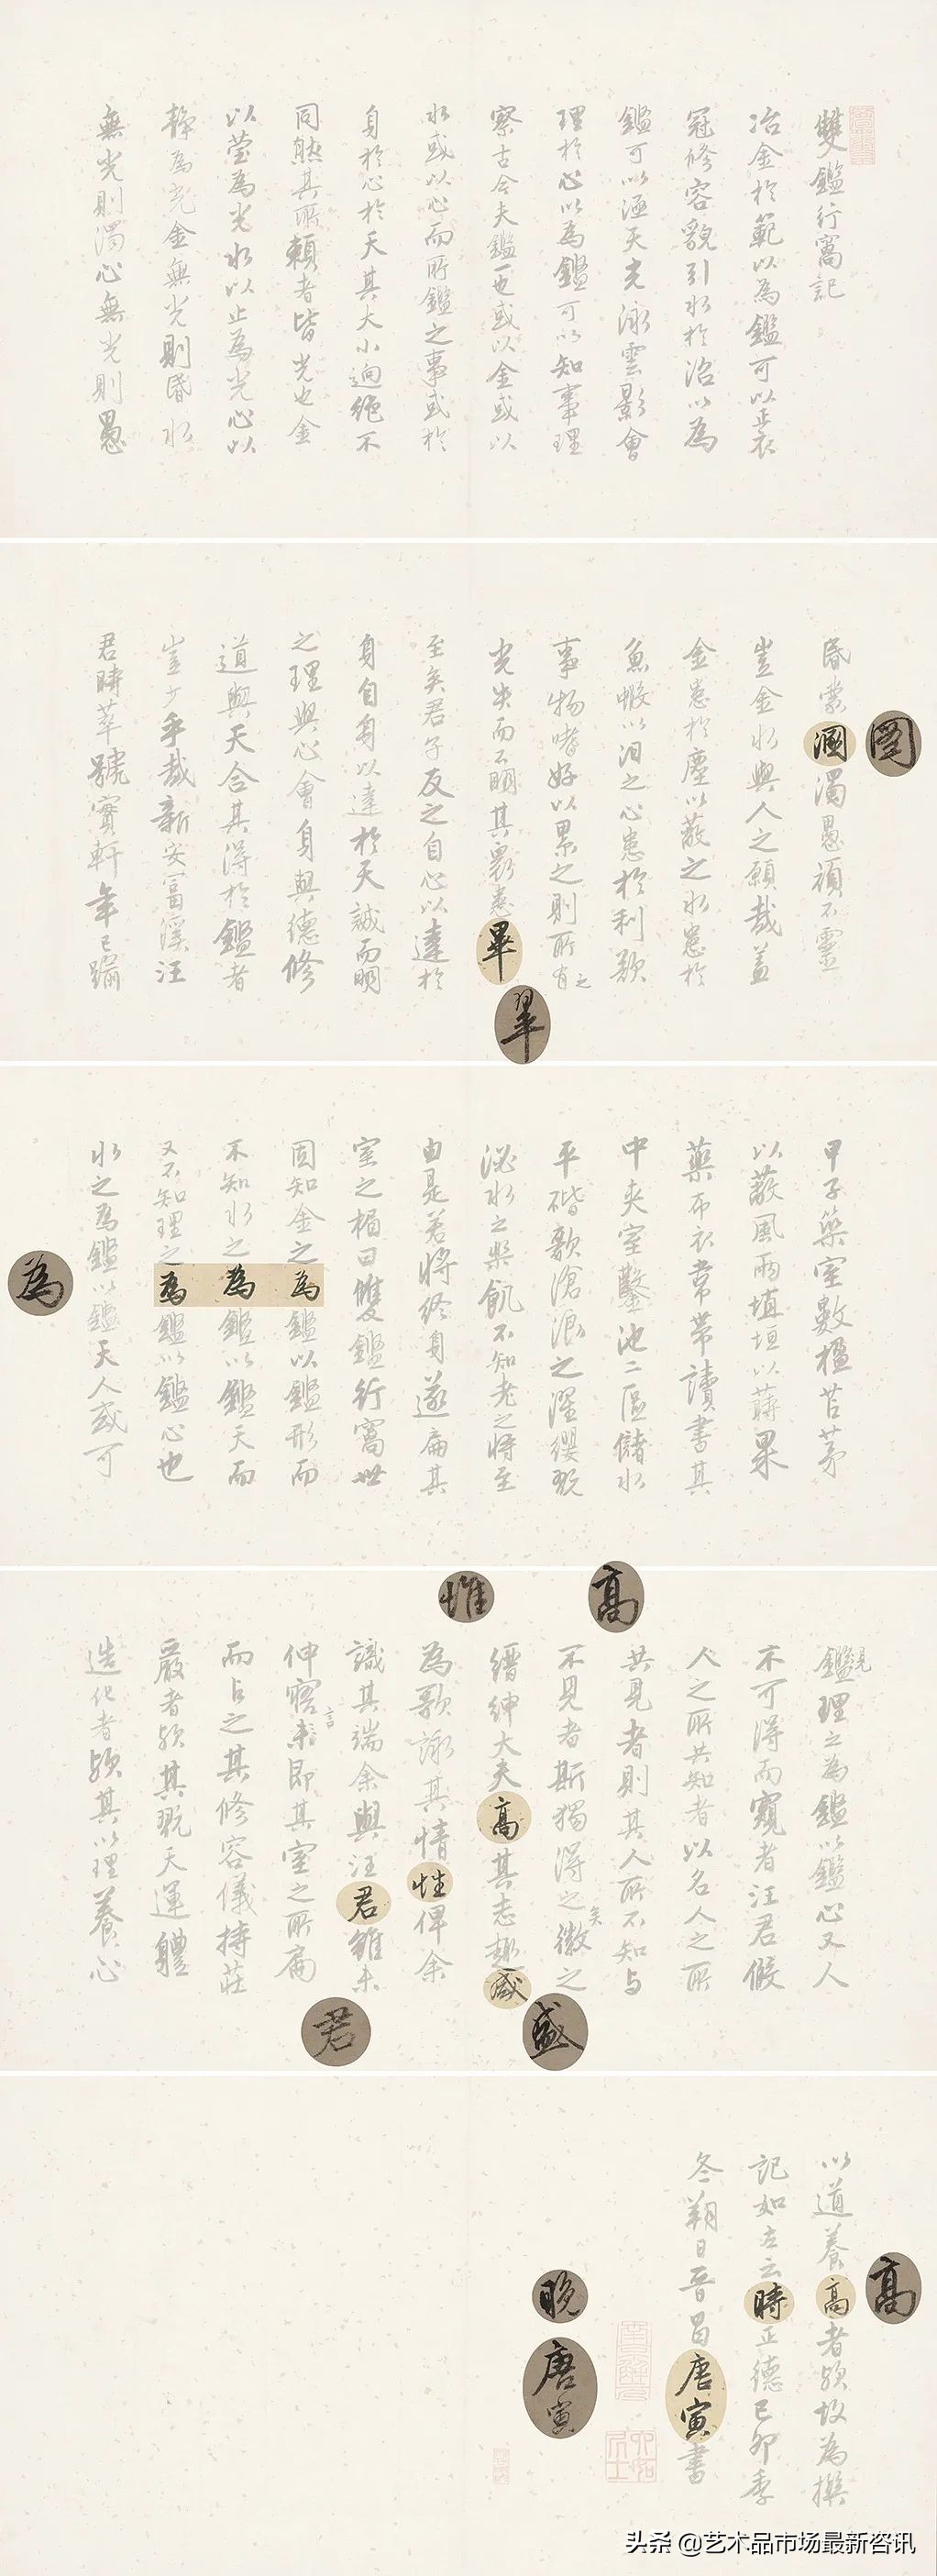 雙鑑行窩記
冶金於範以為鑑可以正衣
冠修容貌引水於沼以為
鑑可以涵天光泳雲影會
理於心以為鑑可以知事理
察古今夫鑑一也或以金或以
水或以心而所鑑之事或於
身於心於天其大小迥絕不
同然其所賴者皆光也金
以瑩為光水以止為光心以
靜為光金無光則昏水
無光則濁心無光則愚
昏蒙溷濁愚頑不靈
圂
豈金水與人之願哉蓋
金患於塵以蔽之水患於
魚蝦以汨之心患於利欲
事物嗜好以累之則所有之
光失而不明其為患畢
畢
至矣君子反之自心以達於
身自身以達於天誠而明
之理與心會身與德修
道與天合其得於鑑者
豈少乎哉新安富溪汪
君時萃號實軒年已踰
甲子築室數楹苫茅
以蔽風雨埴垣以蒔果
藥布衣常帶讀書其
中夾室鑿池二區儲水
平階歌滄浪之濯纓玩
泌水之樂飢不知老之將至
由是若將終身遂扁其
室之楣曰雙鑑行窩世
固知金之為鑑以鑑形而
不知水之為鑑以鑑天而
又不知理之為鑑以鑑心也
為
水之為鑑以鑑天人或可
見
鑑理之為鑑以鑑心又人
不可得而窺者汪君假
人之所共知者以名人之所
共見者則其人所不知與
不見者斯獨得之矣徽之
高
縉紳大夫高其志趣咸
盛
為歌詠其情性俾余
惟
識其端余與汪君雖未
君
伸寤言即其室之所扁
而占之其修容儀摶莊
嚴者歟其玩天運體
造化者歟其以理養心
以道養高者歟故為撰
高
記如左云時正德己卯季
晚
冬朔日晉昌唐寅書
唐寅
頭条 @艺术品市场最新咨讯